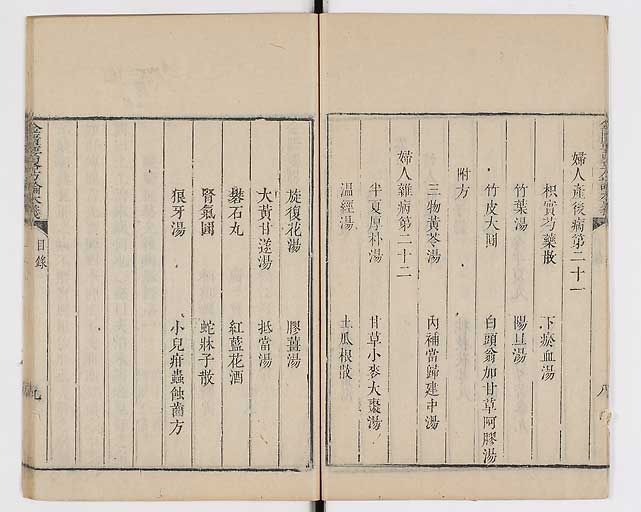 婦人產後病第二十一
枳實芍藥散 下瘀血湯
竹葉湯 陽旦湯
竹皮大圓 白頭翁加甘草阿膠湯
附方
三物黄芩湯 内補當歸建中湯
婦人雜病第二十二
半夏厚朴湯 甘草小麥大棗湯
温經湯 土瓜根散
八
旋復花湯 膠薑湯
大黄甘遂湯 抵當湯
礬石丸 紅藍花酒
腎氣圓 蛇牀子散
狼牙湯 小兒疳蟲蝕齒方
目錄
九